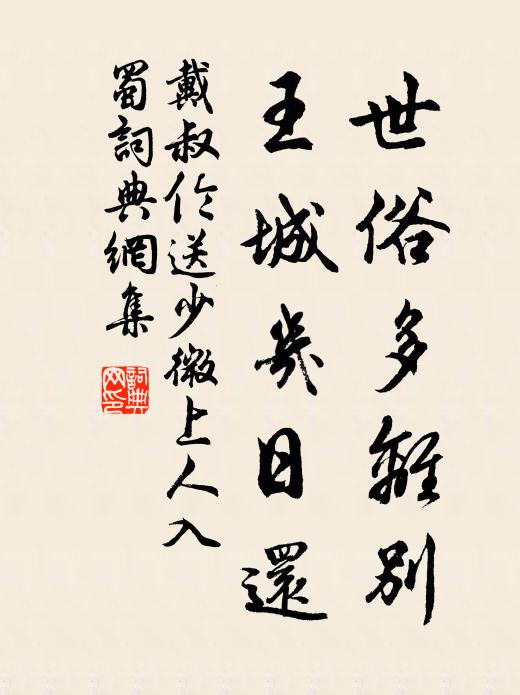 世俗多離別
王城幾日還
戴叔伦送少微上人入
蜀詞典網集
詞典
网印